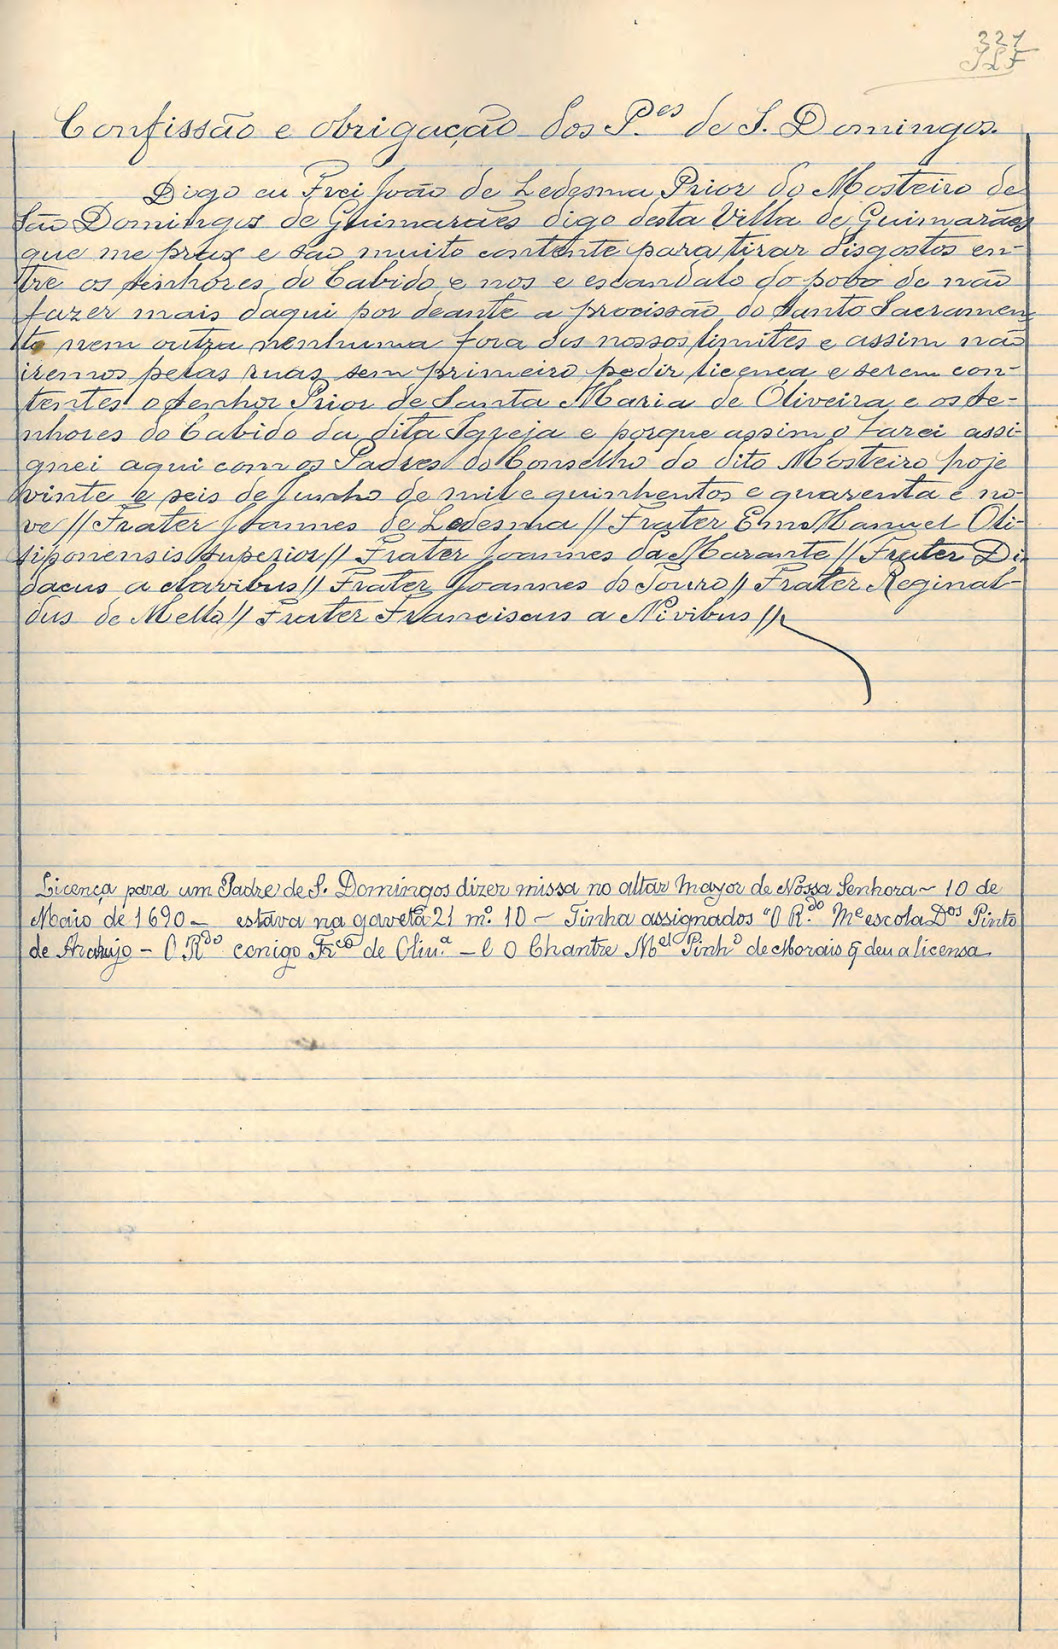 321
Confissão e obrigação dos P.es de S. Domingos.
Digo eu Frei João de Ledesma Prior do Mosteiro de
São Domingos de Guimarães digo desta Villa de Guimarães
que me praz e sao muito contente para tirar disgostos en-
tre os senhores do Cabido e nos e escandalo do povo de não
fazer mais daqui por deante a procissão do Santo Sacramen
to nem outra nenhuma fora dos nossos limites e assim não
iremos pelas ruas sem primeiro pedir licença e serem con-
tentes o Senhor Prior de Santa Maria de Oliveira e os Se-
nhores do Cabido da dita Igreja e porque assim o farei assi-
gnei aqui com os Padres do Conselho do dito Mosteiro hoje
vinte e seis de Junho de mil e quinhentos e quarenta e no-
ve // Frater Joannes de Ledesma // Frater Emmanuel Oli-
siponensis Superior // Frater Joannes da Marante // Frater Di-
dacus a clavibus // Frater Joannes do Touro // Frater Reginal-
dus de Mello // Frater Franciscus a Nivibus //
Licença para um Padre de S. Domingos dizer missa no altar Mayor de Nossa Senhora ~ 10 de
Maio de 1690 — estava na gaveta 21 mº. 10 — Tinha assignados "O R.do Me escola Dos Pinto
de Araujo — O Rdo conigo Frco de Oliv.ª — e O Chantre Mel Pinhº de Morais q̃ deu a licensa.